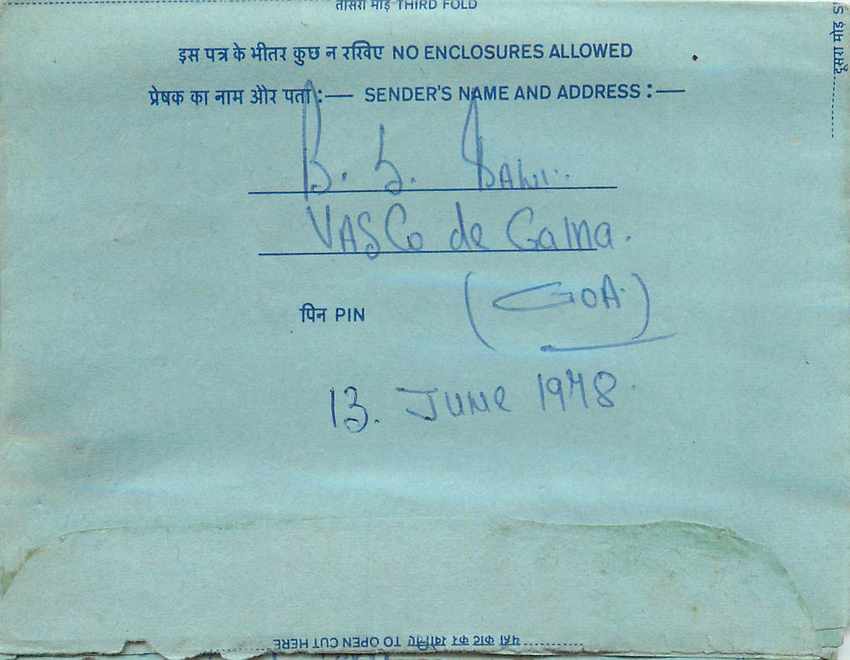 तीसरा मोड़ THIRD FOLD
दूसरा मोड़
इस पत्र के भीतर कुछ न रखिए NO ENCLOSURES ALLOWED
प्रेषक का नाम और पता :— SENDER'S NAME AND ADDRESS :—
B. S.
VASCo de Gama.
पिन PIN
(GOA)
13. JUNE 1978.
यहां काट कर खोलिए TO OPEN CUT HERE